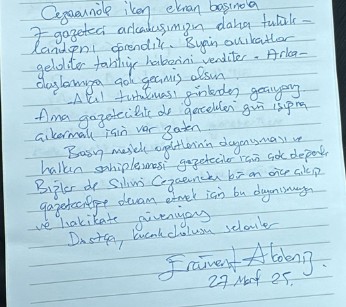 Cezaevinde iken ekran başında
7 gazeteci arkadaşımızın daha tutuk-
landığını öğrendik. Bugün avukatlar
geldiler tahliye haberini verdiler. Arka-
daşlarımıza çok geçmiş olsun
Akıl tutulması günlerden geçiyoruz
Ama gazetecilik de gerçekleri gün ışığına
çıkarmak için var zaten
Basın meslek örgütlerinin dayanışması ve
halkın sahiplenmesi gazeteciler için çok değerli.
Bizler de Silivri Cezaevinden bir an önce çıkıp
gazeteciliğe devam etmek için bu dayanışmaya
ve hakikate güveniyoruz
Dostça, kucak dolusu selamlar
27 Mart 25.